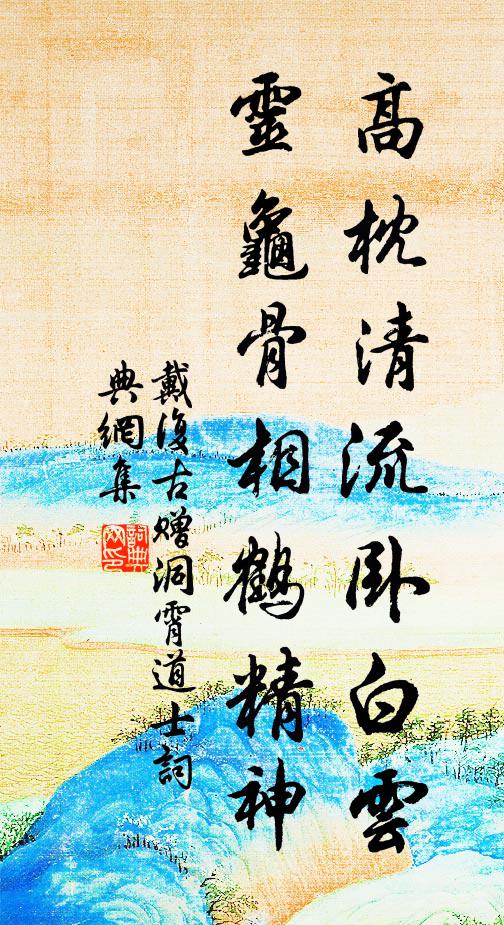 高枕清流卧白雲
靈龜骨相鶴精神
戴復古贈洞霄道士詞
典網集